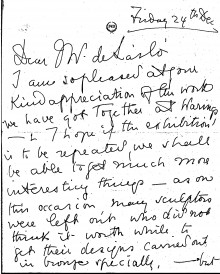 Friday 24th Dec
Dear Mr de László
I am so pleased at your
kind appreciation of the work
we have got together at Warings
— & I hope if the exhibition
is to be repeated, we shall
be able to get much more
interesting things — as on
this occasion many sculptors
were left out who did not
think it worth while to
get their designs carried out
in bronze specially —